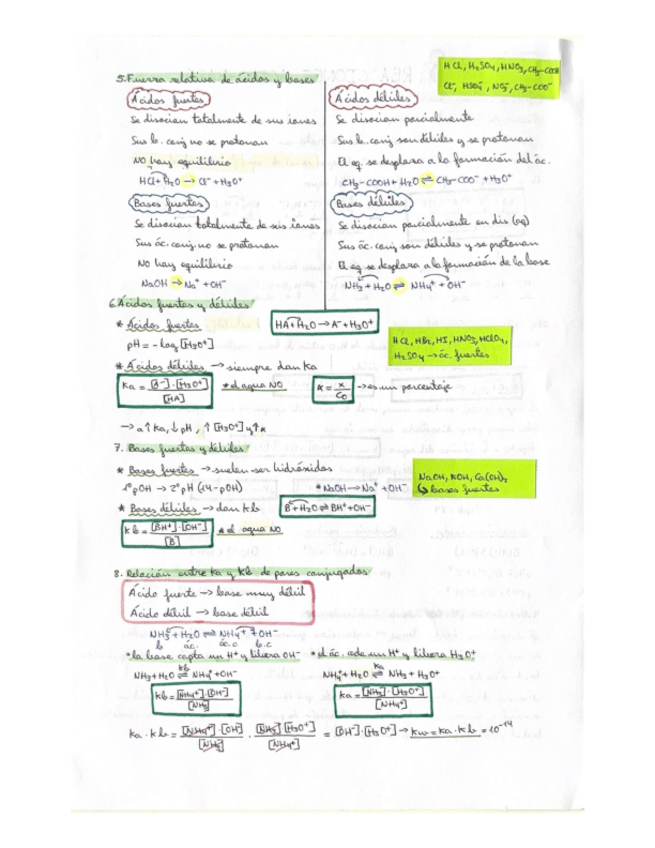 HCl, H₂SO₄, HNO₃, CH₃-COOH
Cl⁻, HSO₄⁻, NO₃⁻, CH₃-COO⁻
5. Fuerza relativa de ácidos y bases
Ácidos fuertes
Se disocian totalmente de sus iones
Sus b. conj no se protonan
NO hay equilibrio
HCl + H₂O → Cl⁻ + H₃O⁺
Bases fuertes
Se disocian totalmente de sus iones
Sus ác. conj. no se protonan
No hay equilibrio
NaOH → Na⁺ + OH⁻
Ácidos débiles
Se disocian parcialmente
Sus b. conj son débiles y se protonan
El eq. se desplaza a la formación del ác.
CH₃-COOH + H₂O ⇌ CH₃-COO⁻ + H₃O⁺
Bases débiles
Se disocian parcialmente en dis (aq)
Sus ác. conj son débiles y se protonan
El eq se desplaza a la formación de la base
NH₃ + H₂O ⇌ NH₄⁺ + OH⁻
6. Ácidos fuertes y débiles
* Ácidos fuertes HA + H₂O → A⁻ + H₃O⁺
pH = -log [H₃O⁺]
HCl, HBr, HI, HNO₃, HClO₄,
H₂SO₄ → ác. fuertes
* Ácidos débiles → siempre dan Ka
Ka = [B⁻]·[H₃O⁺] / [HA] * el agua NO α = x / C₀ → es un porcentaje
→ a ↑ Ka, ↓ pH, ↑ [H₃O⁺] y ↑ α
7. Bases fuertes y débiles
* Bases fuertes → suelen ser hidróxidos
1º pOH → 2º pH (14 - pOH) * NaOH → Na⁺ + OH⁻
NaOH, KOH, Ca(OH)₂
↳ bases fuertes
* Bases débiles → dan Kb B + H₂O ⇌ BH⁺ + OH⁻
Kb = [BH⁺]·[OH⁻] / [B] * el agua NO
8. Relación entre Ka y Kb de pares conjugados
Ácido fuerte → base muy débil
Ácido débil → base débil
NH₃ + H₂O ⇌ NH₄⁺ + OH⁻
b ác. ác.c b.c
* la base capta un H⁺ y libera OH⁻ * el ác. cede un H⁺ y libera H₃O⁺
NH₃ + H₂O ⇌ (Kb) NH₄⁺ + OH⁻ NH₄⁺ + H₂O ⇌ (Ka) NH₃ + H₃O⁺
Kb = [NH₄⁺]·[OH⁻] / [NH₃] Ka = [NH₃]·[H₃O⁺] / [NH₄⁺]
Ka · Kb = [NH₄⁺]·[OH] / [NH₃] · [NH₃]·[H₃O⁺] / [NH₄⁺] = [OH⁻]·[H₃O⁺] → Kw = Ka · Kb = 10⁻¹⁴